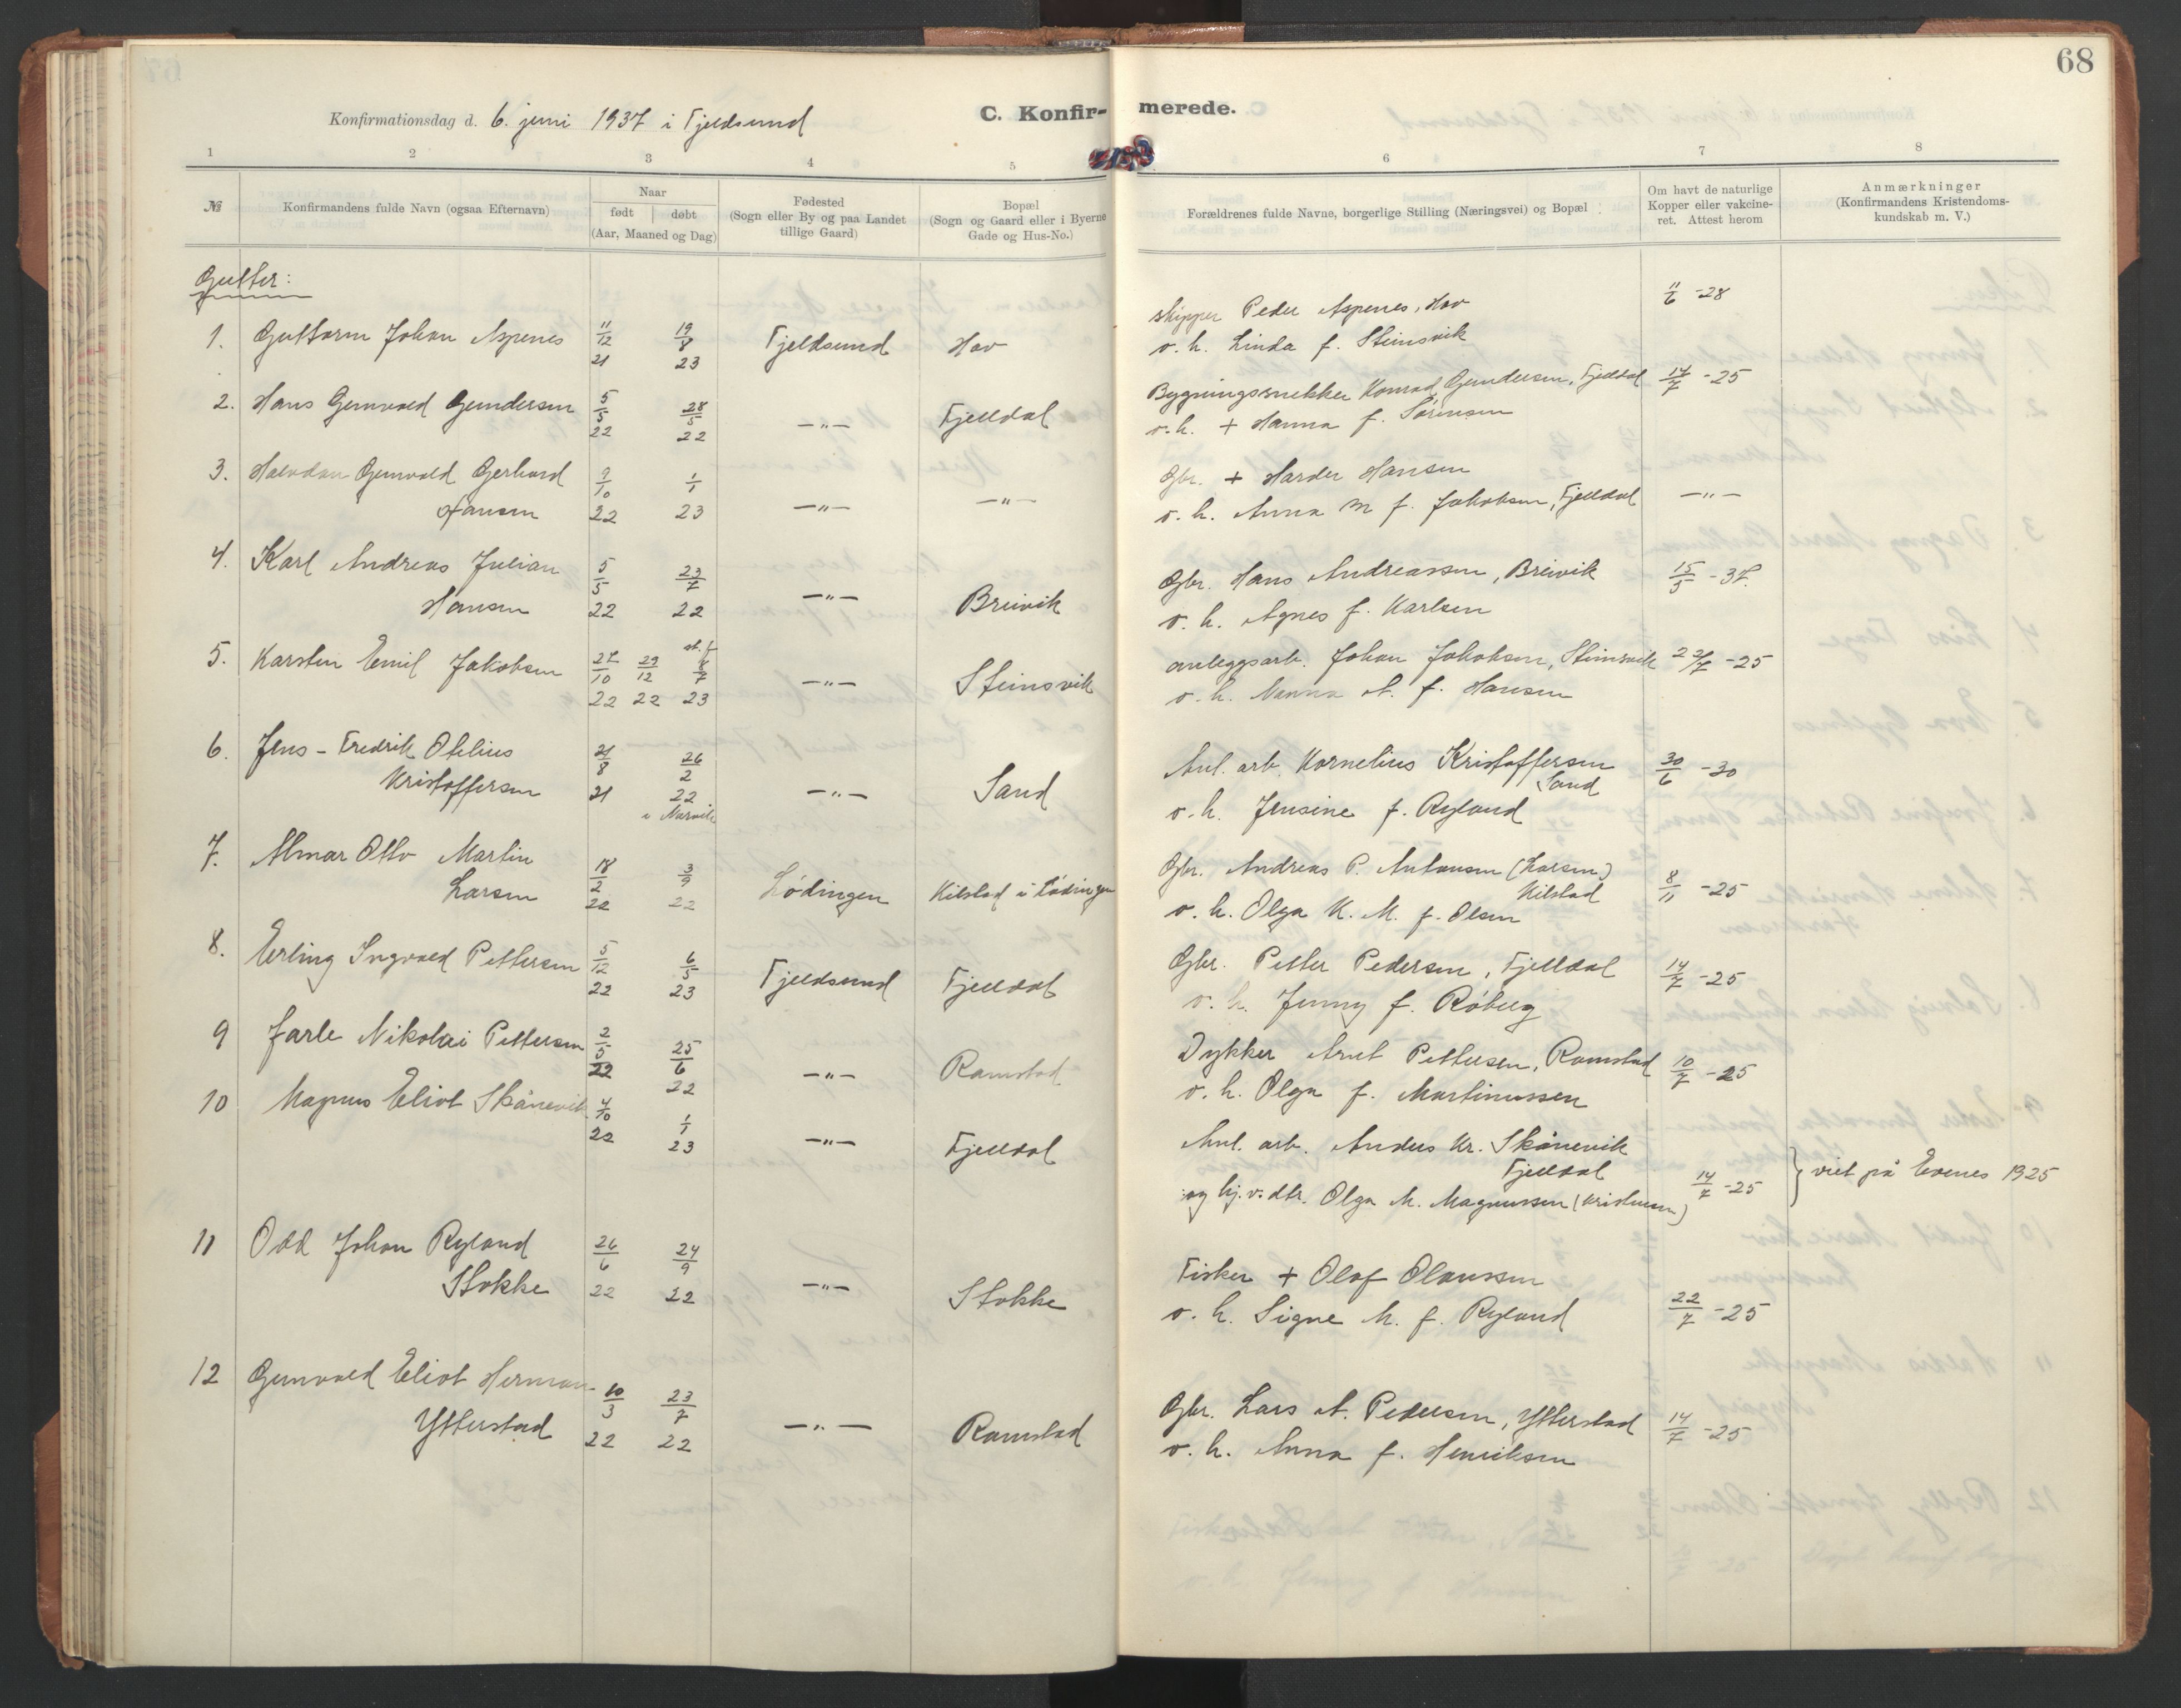 68
Konfirmationsdag d. 6. juni 1937 i Fjeldsund
C. Konfir-
merede.
1 2 3 4 5 6 7 8
№
Konfirmandens fulde Navn (ogsaa Efternavn)
Naar
født døbt
(Aar, Maaned og Dag)
Fødested
(Sogn eller By og paa Landet
tillige Gaard)
Bopæl
(Sogn og Gaard eller i Byerne
Gade og Hus-No.)
Forældrenes fulde Navne, borgerlige Stilling (Næringsvei) og Bopæl
Om havt de naturlige
Kopper eller vakcine-
ret. Attest herom
Anmærkninger
(Konfirmandens Kristendoms-
kundskab m. V.)
Gutter:
1. Guttorm Johan Aspenes 11/12 21 19/8 23 Fjeldsund Hov
skipper Peder Aspenes, Hov 11/6 -28
o. h. Linda f. Steinsvik
2. Hans Gunvald Gundersen 5/5 22 28/5 22 —"— Fjelldal
Bygningssnekker Konrad Gundersen, Fjelldal 14/7 -25
o. h. + Hanna f. Sörensen
3. Halvdan Gunvald Gerhard
Hansen 9/10 22 1/1 23 —"— —"—
Gbr. + Harder Hansen
o. h. Anna M f. Jakobsen, Fjelldal —"—
4. Karl Andreas Julian
Hansen 5/5 22 23/7 22 —"— Breivik
Gbr. Hans Andreassen, Breivik 15/5 -37.
o. h. Agnes f. Karlsen
5. Karsten Emil Jakobsen 27/10 22 29/12 22 8/7 23 —"— Steinsvik
anleggsarb. Johan Jakobsen, Steinsvik 22/7 -25
o. h. Nanna A. f. Hansen
6. Jens-Fredrik Otelius
Kristoffersen 21/8 21 26/2 22 —"— Sand
i Narvik
Anl. arb. Kornelius Kristoffersen 30/6 -30
Sand
o. h. Jensine f. Ryland
7. Almar Otto Martin
Larsen 18/2 22 3/9 22 Lödingen Kilstad i Lödingen
Gbr. Andreas P. Antonsen (Larsen)
Kilstad 8/11 -25
o. h. Olga K. M. f. Olsen
8. Erling Ingvald Pettersen 5/12 22 6/5 23 Fjeldsund Fjelldal
Gbr. Petter Pedersen, Fjelldal 14/7 -25
o. h. Jenny f. Röberg
9 Jarle Nikolai Pettersen 2/5 22 25/6 22 —"— Ramstad
Dykker Arnt Pettersen, Ramstad 10/7 -25
o. h. Olga f. Martinussen
10 Magnus Eliot Skånevik 4/10 22 1/1 23 —"— Fjelldal
Anl. arb. Anders Kr. Skånevik
Fjelldal
og hj. v. dtr. Olga M. Magnussen (Kristensen) 14/7 -25 } viet på Evenes 1925
11 Odd Johan Ryland
Stokke 26/6 22 24/9 22 —"— Stokke
Fisker + Olaf Olaussen
o. h. Signe M. f. Ryland 22/7 -25
12 Gunvald Eliot Herman
Ytterstad 10/3 22 23/7 22 —"— Ramstad
Gbr. Lars A. Pedersen, Ytterstad 14/7 -25
o. h. Anna f. Henriksen